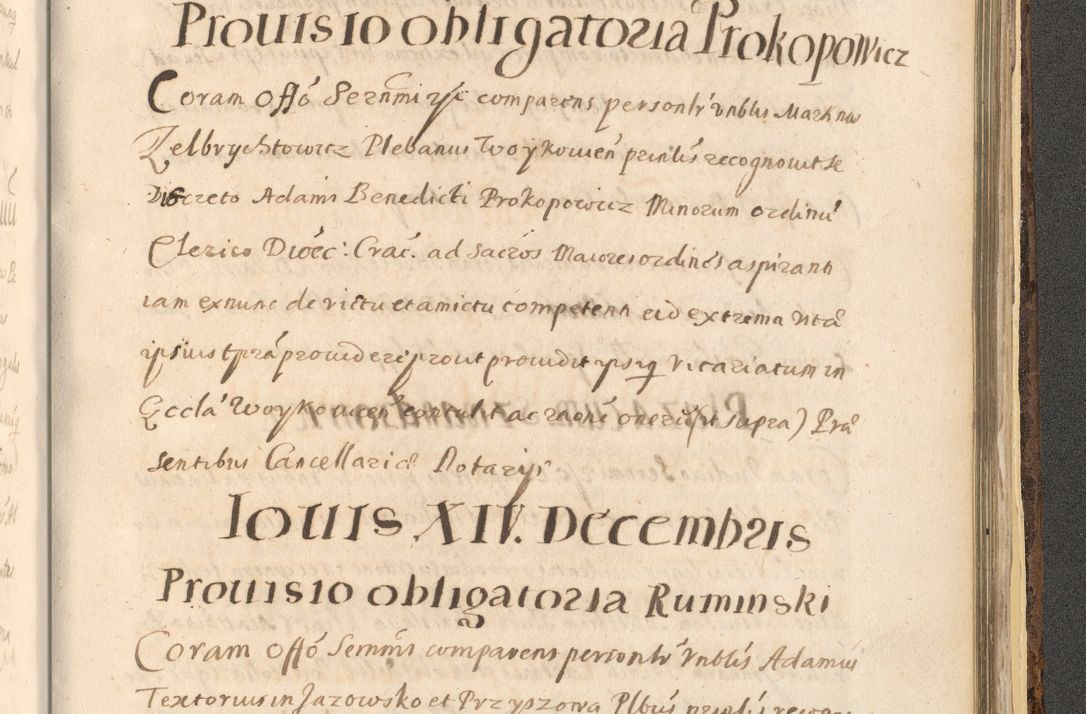 Prouisio obligatoria Prokopowicz
Coram Offō Serñmi rz̃c comparens personlr̃ Vnblis Markus
Zelbrychtowicz Plebanus Woykouien̄ prntis recognouit se
Discreto Adami Benedicti Prokopowicz Minorum ordinū
Clerico Dioec: Crac̃. ad Sacros Maiores ordines aspiranti
iam ex nunc de victu et amictu competenti ad extrema vitæ
ipsius tp̃ra prouidere prout prouidit ipsiq Vicariatum in
Eccla Woykouien̄ contulit ac ratione oneris (pt supra) Præ
sentibus Cancellariæ Notarijs
Iouis XIV. Decembris
Prouisio obligatoria Ruminski
Coram Offō Sermm̃s comparens personlr̃ Vnblis Adamus
Textorius in Jazowsko et Przyszowa Plbus